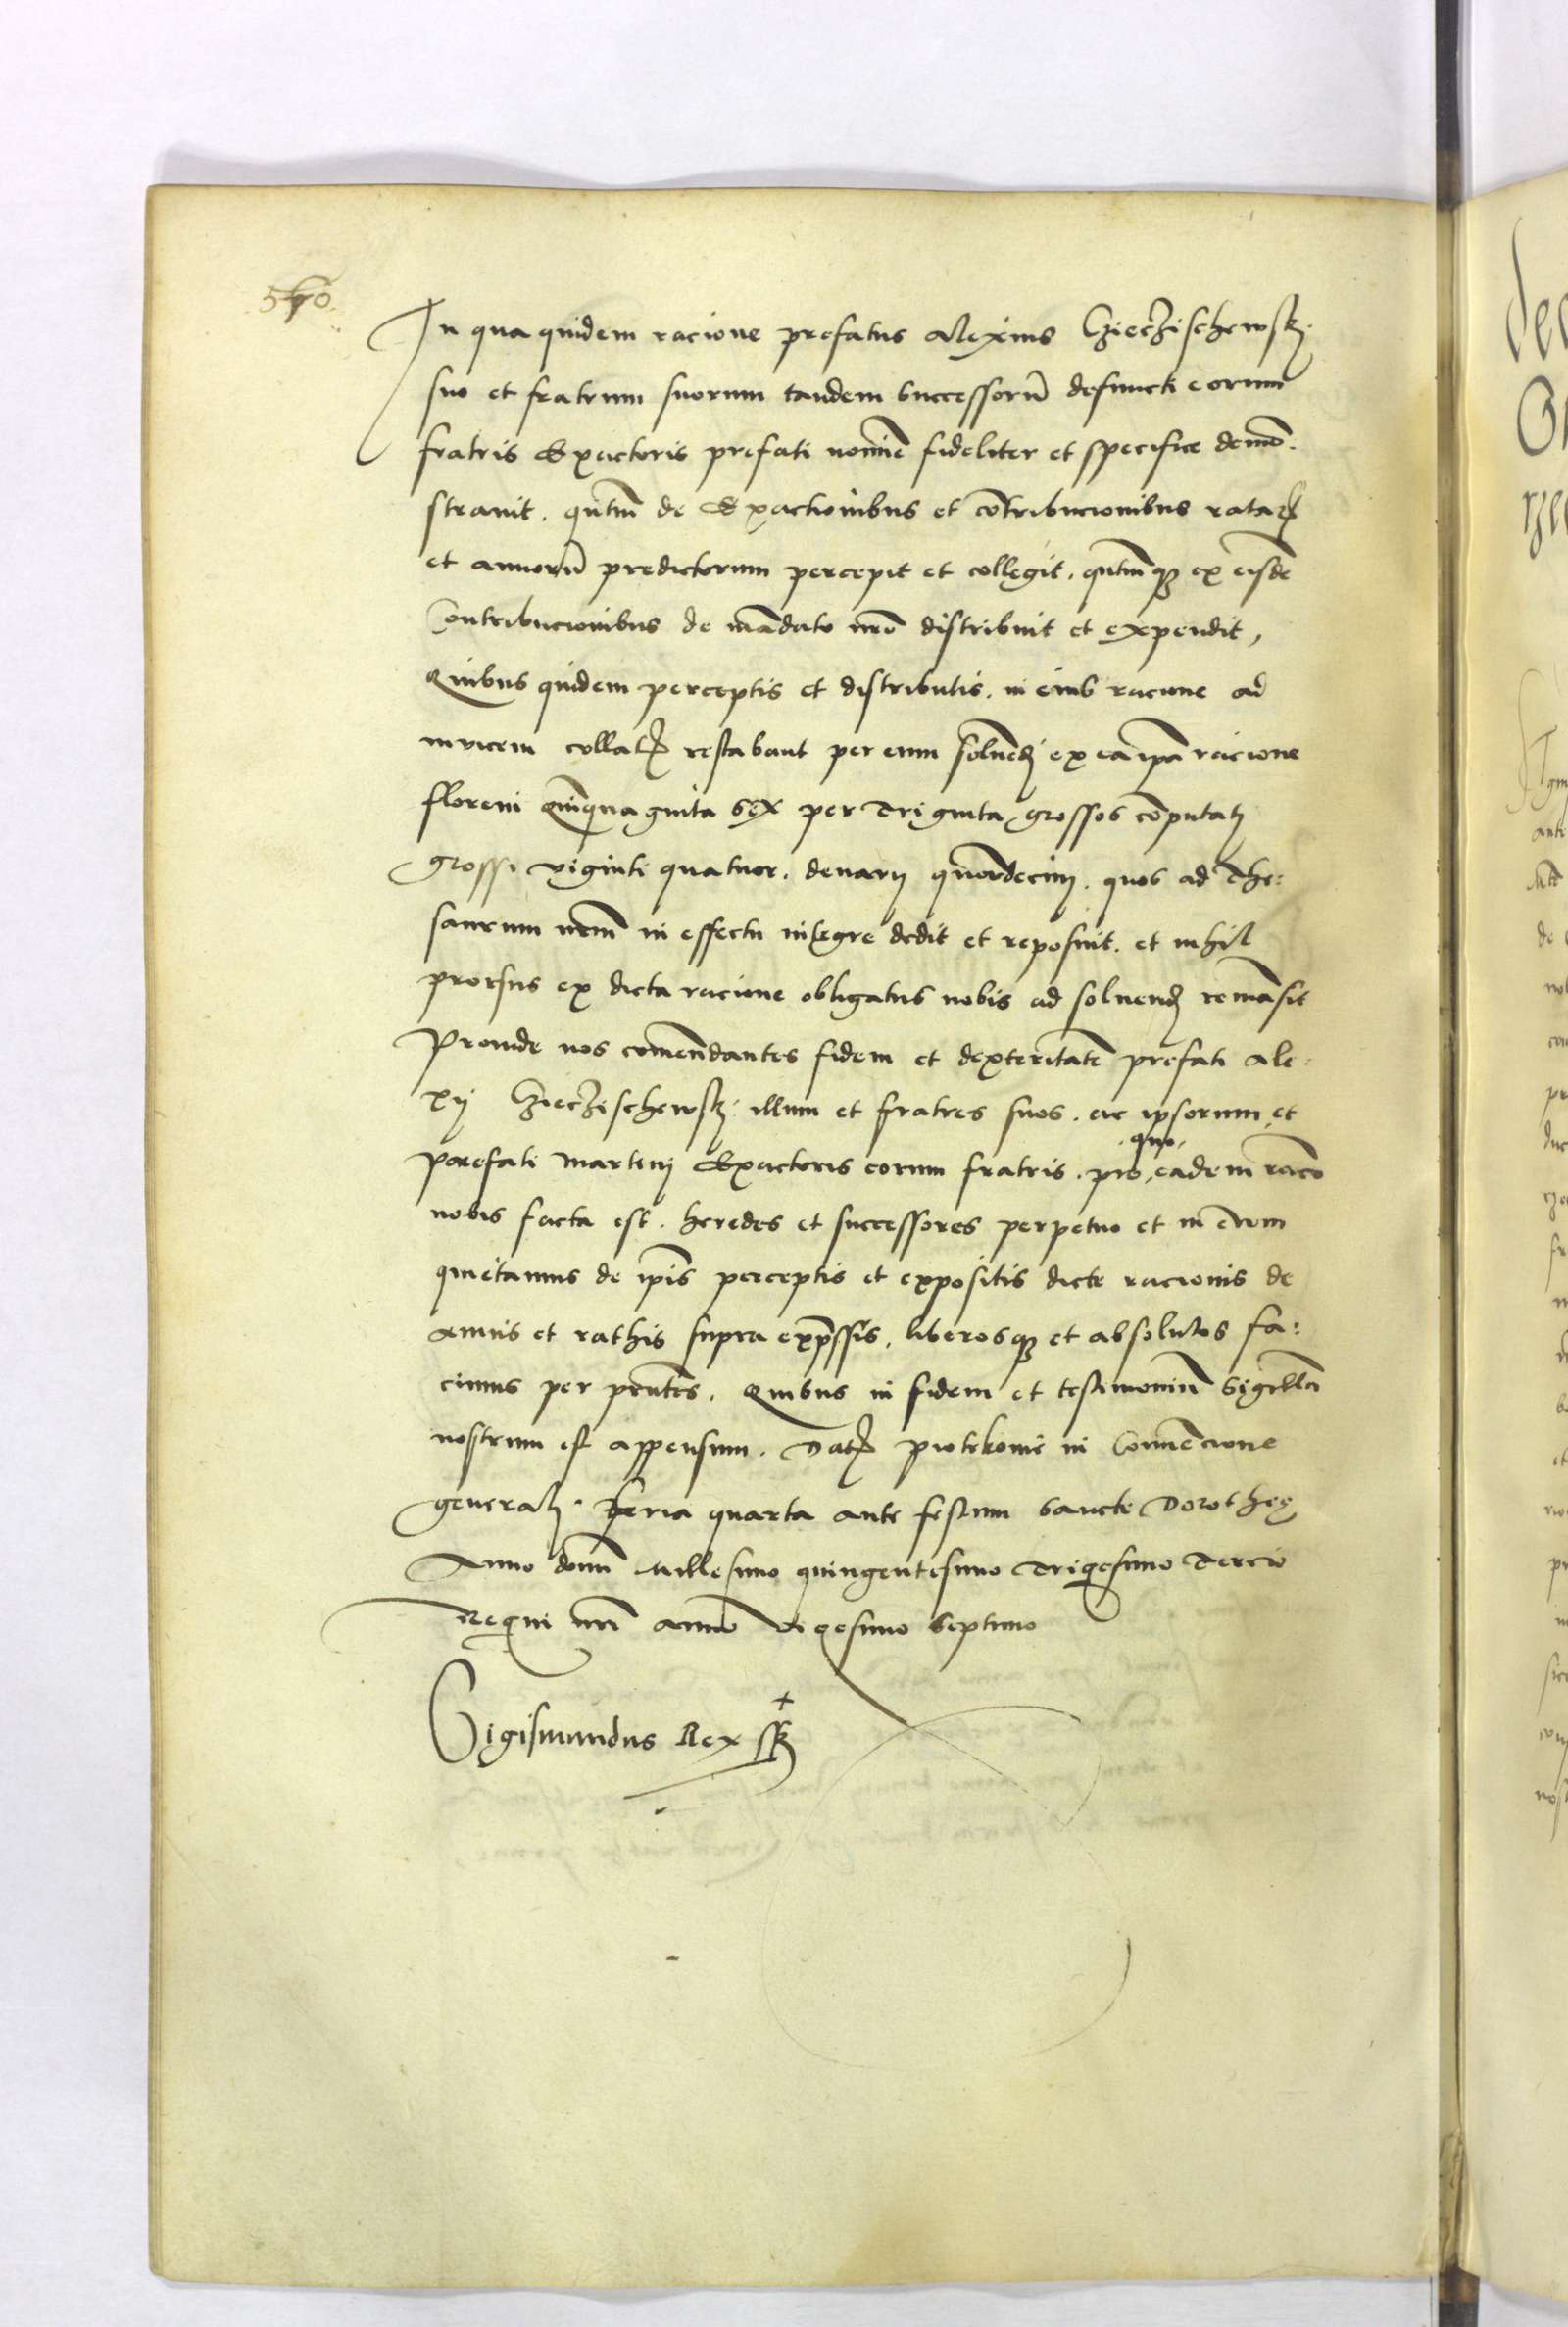 In qua quidem racione prefatus Alexius Cziecziſchewſkj
suo et fratrum suorum tandem successorū defuncti eorum
fratris Exactoris prefati nomīe fideliter et specifice demō:
stravit. qntum̄ de Exactionibus et cōtribucionibus rataꝝ
et annorū predictorum percepit et collegit. qntum̄qꝫ ex eisdē
Contribucionibus de mādato nrō distribuit et expendit,
Quibus quidem perceptis et distributis. in eius racione ad
invicem collatꝭ restabant per eum solvēdj ex ea ipā racione
floreni Quīquaginta sex per Triginta grossos cōputatj
grossi viginti quatuor. denarij quordecim. quos ad The:
saurum nrm̄ in effectu integre dedit et reposuit. et nihil
prorsus ex dicta racione obligatus nobis ad solvendū remāsit
Proinde nos comēndantes fidem et dexteritatē prefati Ale:
xij Cziecziſchewſkj illum et fratres suos. ac ipsorum et
prefati Martinj Exactoris eorum fratris. pro quo eadem racō
nobis facta est. heredes et successores perpetuo et in evum
quietamus de ipīs perceptis et expositis dicte racionis de
annis et rathis supra exp̄ssis, liberosqꝫ et absolutos fa:
cimus per pn̄tes. Quibus in fidem et testimoniū Sigillū
nostrum est appensum. Datꝭ Piotrkovie in Conuēcione
generalj. Feria quarta ante festum Sancte Dorotheę
Anno domī Millesimo quingentesimo Trigesimo Tercio
Regni nrī anno Vigesimo Septimo
Sigismundus Rex sst